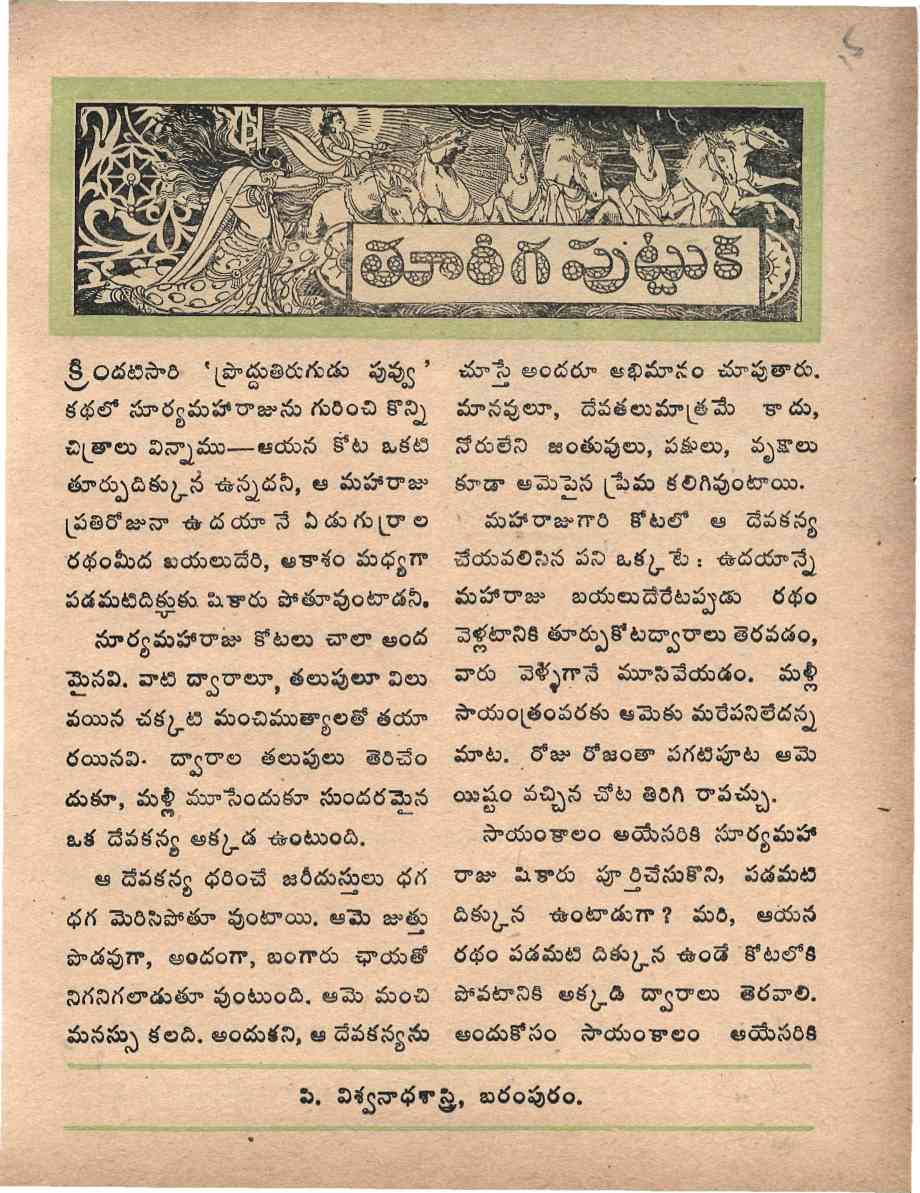 తూనీగ పుట్టుక
క్రిందటిసారి ‘ప్రొద్దుతిరుగుడు పువ్వు’
కథలో సూర్యమహారాజును గురించి కొన్ని
చిత్రాలు విన్నాము—ఆయన కోట ఒకటి
తూర్పుదిక్కున ఉన్నదనీ, ఆ మహారాజు
ప్రతిరోజునా ఉదయానే ఏడుగుర్రాల
రథంమీద బయలుదేరి, ఆకాశం మధ్యగా
పడమటిదిక్కుకు షికారు పోతూవుంటాడనీ.
సూర్యమహారాజు కోటలు చాలా అంద
మైనవి. వాటి ద్వారాలూ, తలుపులూ విలు
వయిన చక్కటి మంచిముత్యాలతో తయా
రయినవి. ద్వారాల తలుపులు తెరిచేం
దుకూ, మళ్లీ మూసేందుకూ సుందరమైన
ఒక దేవకన్య అక్కడ ఉంటుంది.
ఆ దేవకన్య ధరించే జరీదుస్తులు ధగ
ధగ మెరిసిపోతూ వుంటాయి. ఆమె జుత్తు
పొడవుగా, అందంగా, బంగారు ఛాయతో
నిగనిగలాడుతూ వుంటుంది. ఆమె మంచి
మనస్సు కలది. అందుకని, ఆ దేవకన్యను
చూస్తే అందరూ అభిమానం చూపుతారు.
మానవులూ, దేవతలుమాత్రమే కాదు,
నోరులేని జంతువులు, పక్షులు, వృక్షాలు
కూడా ఆమెపైన ప్రేమ కలిగివుంటాయి.
మహారాజుగారి కోటలో ఆ దేవకన్య
చేయవలిసిన పని ఒక్కటే : ఉదయాన్నే
మహారాజు బయలుదేరేటప్పడు రథం
వెళ్లటానికి తూర్పుకోటద్వారాలు తెరవడం,
వారు వెళ్ళగానే మూసివేయడం. మళ్లీ
సాయంత్రంవరకు ఆమెకు మరేపనిలేదన్న
మాట. రోజు రోజంతా పగటిపూట ఆమె
యిష్టం వచ్చిన చోట తిరిగి రావచ్చు.
సాయంకాలం అయేసరికి సూర్యమహా
రాజు షికారు పూర్తిచేసుకొని, పడమటి
దిక్కున ఉంటాడుగా ? మరి, ఆయన
రథం పడమటి దిక్కున ఉండే కోటలోకి
పోవటానికి అక్కడి ద్వారాలు తెరవాలి.
అందుకోసం సాయంకాలం అయేసరికి
పి. విశ్వనాధశాస్త్రి, బరంపురం.